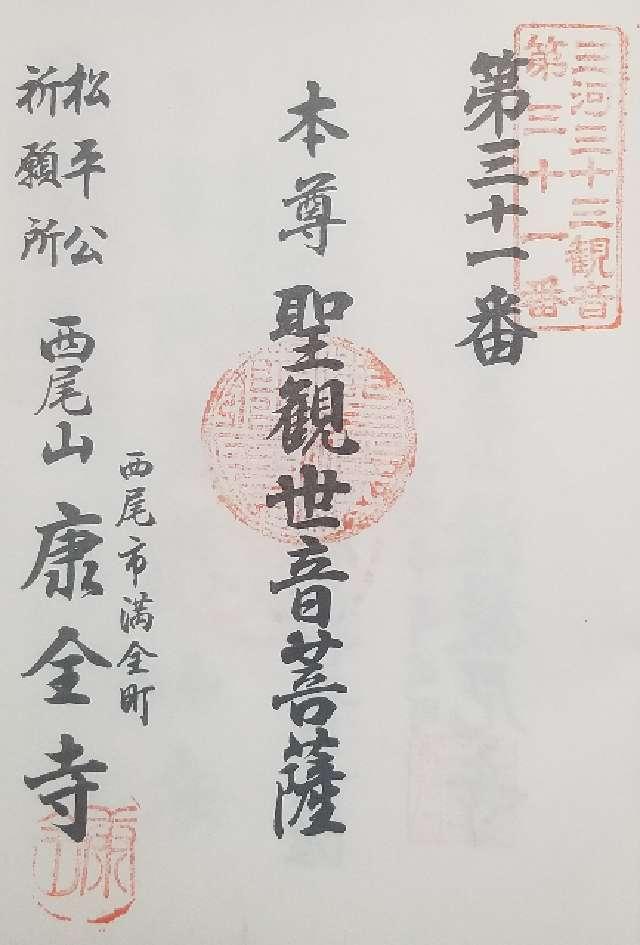 三河三十三観音
第三十一番
第三十一番
本尊 聖観世音菩薩
西尾市満全町
松平公
祈願所
西尾山 康全寺
康全